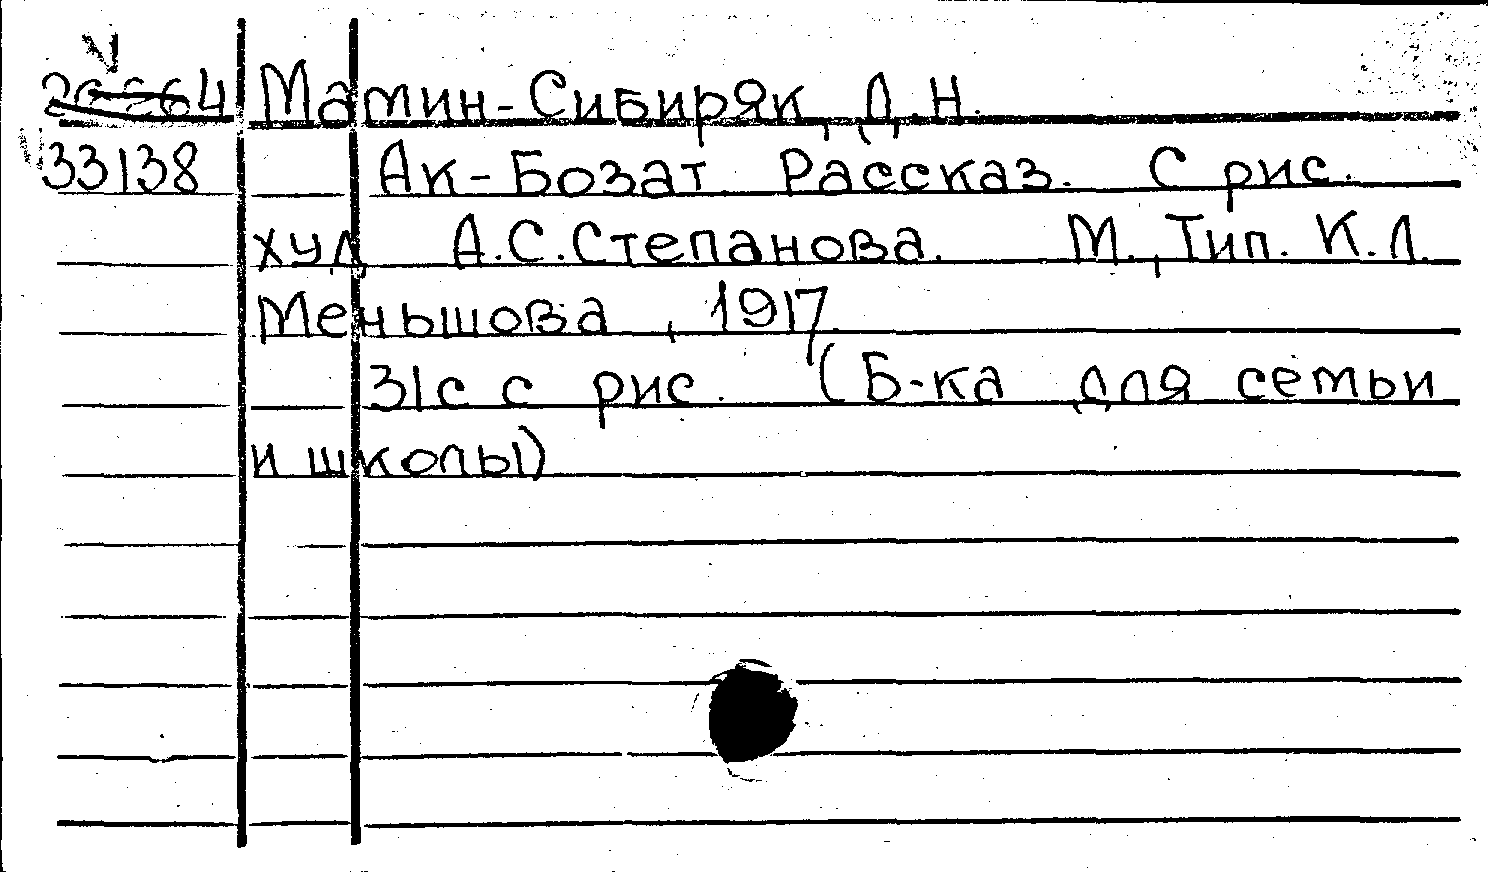 Мамин-Сибиряк, Д.Н.
33138 Ак-Бозат Рассказ. С рис.
худ А.С.Степанова. М., Тип. К.Л.
Меньшова, 1917
31с с рис. (Б-ка для семьи
и школы)